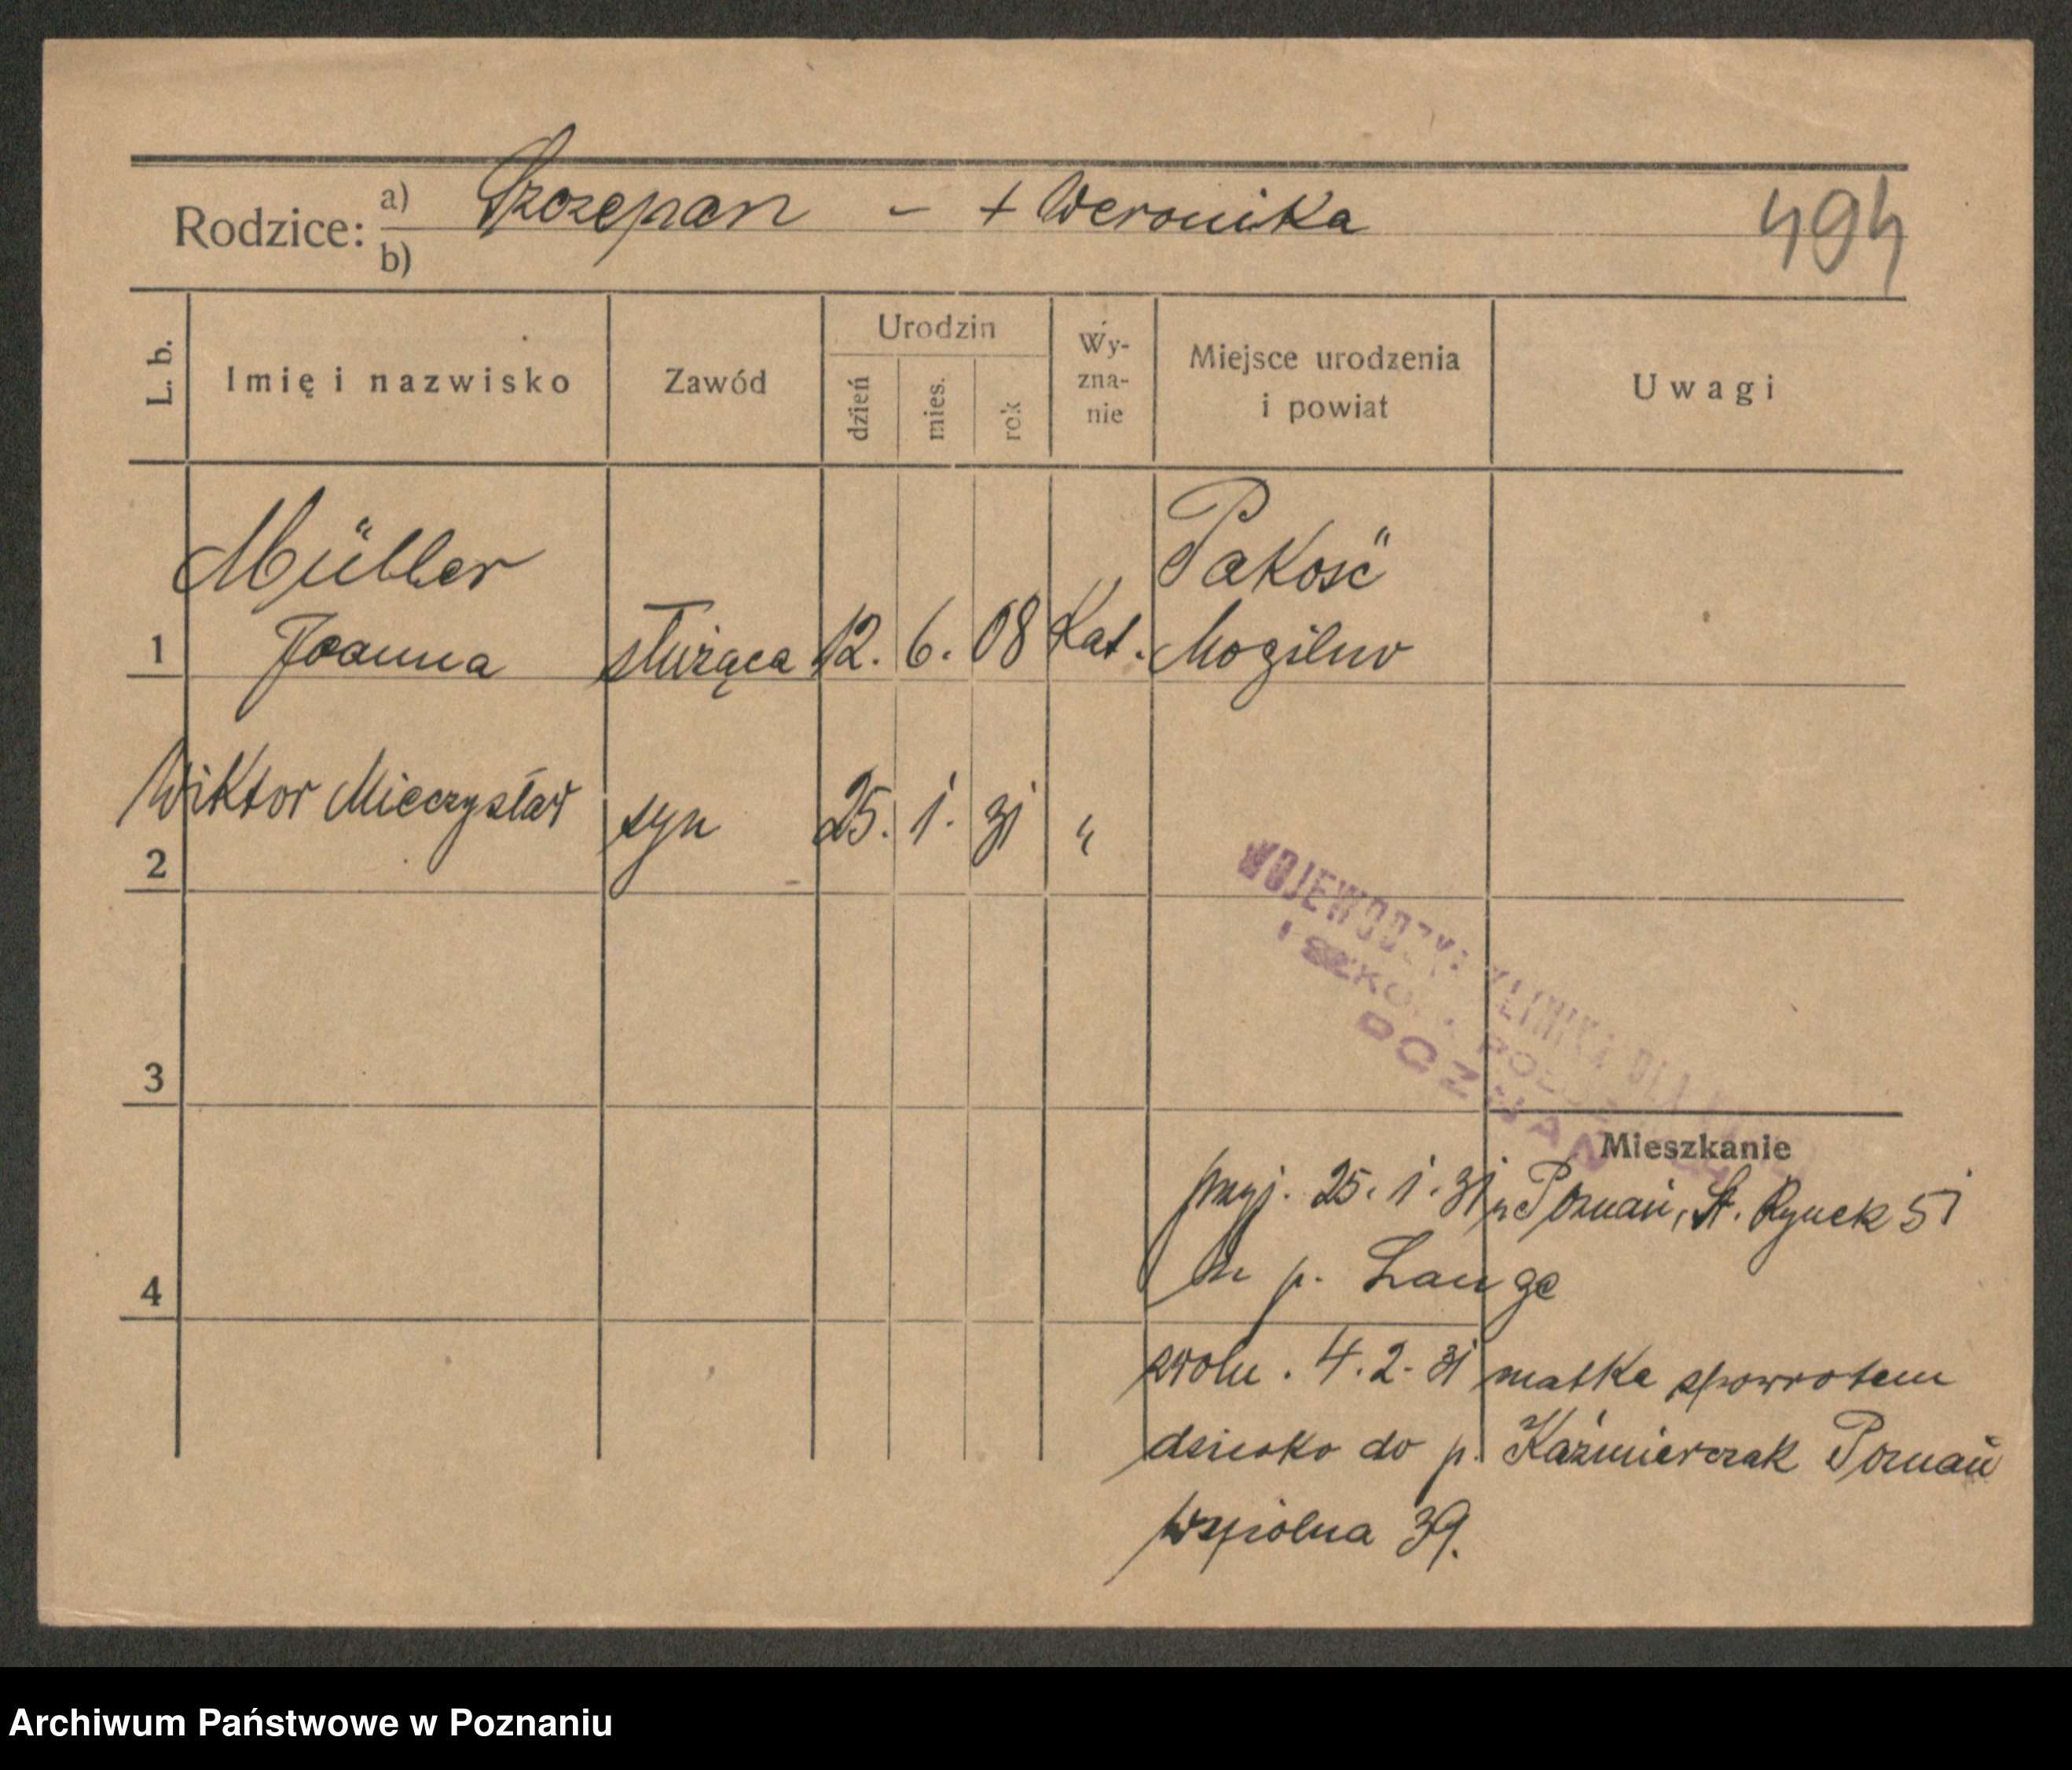 Rodzice: a) Szczepan - + Weronika 494
b)
L. b. Imię i nazwisko Zawód Urodzin dzień mies. rok Wy-zna-nie Miejsce urodzenia i powiat Uwagi
Müller Pakość
1 Joanna służąca 12. 6. 08 Kat. Mogilno
2 Wiktor Mieczysław syn 25. 1. 31 "
3
WOJEWÓDZKA KLINIKA DLA
I SZKOŁA POŁOŻ
POZNAŃ
Mieszkanie
przyj. 25. 1. 31 z Poznań, St. Rynek 51
p. Lange
4
zwoln. 4. 2. 31 matka spowrotem
dziecko do p. Kaźmierczak Poznań
Wspólna 39.
Archiwum Państwowe w Poznaniu